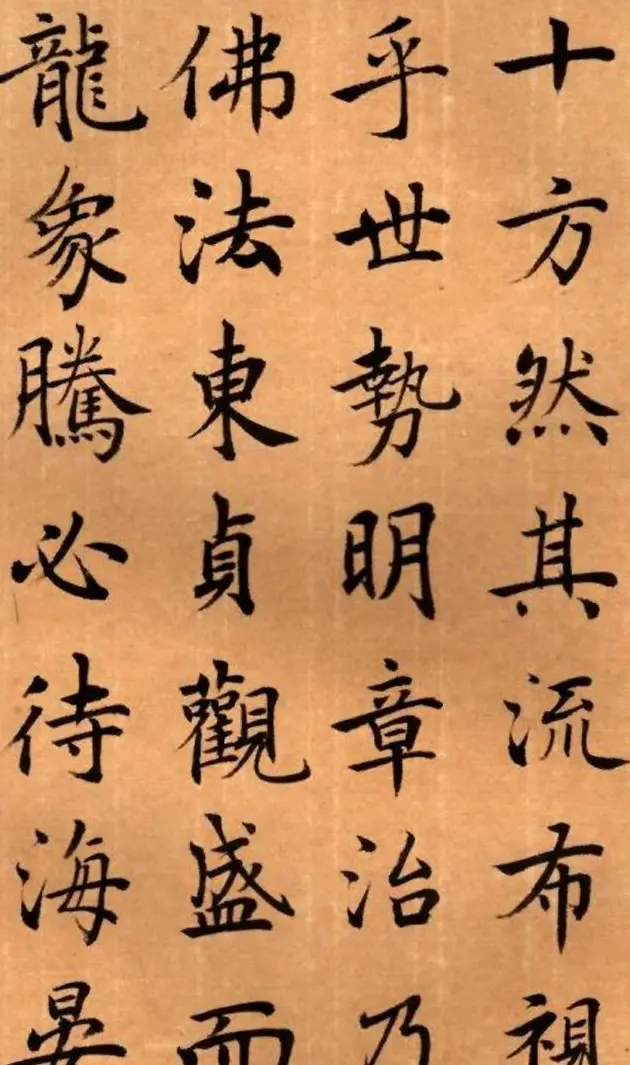 十方然其流布視
乎世勢明章治乃
佛法東貞觀盛而
龍象騰必待海晏